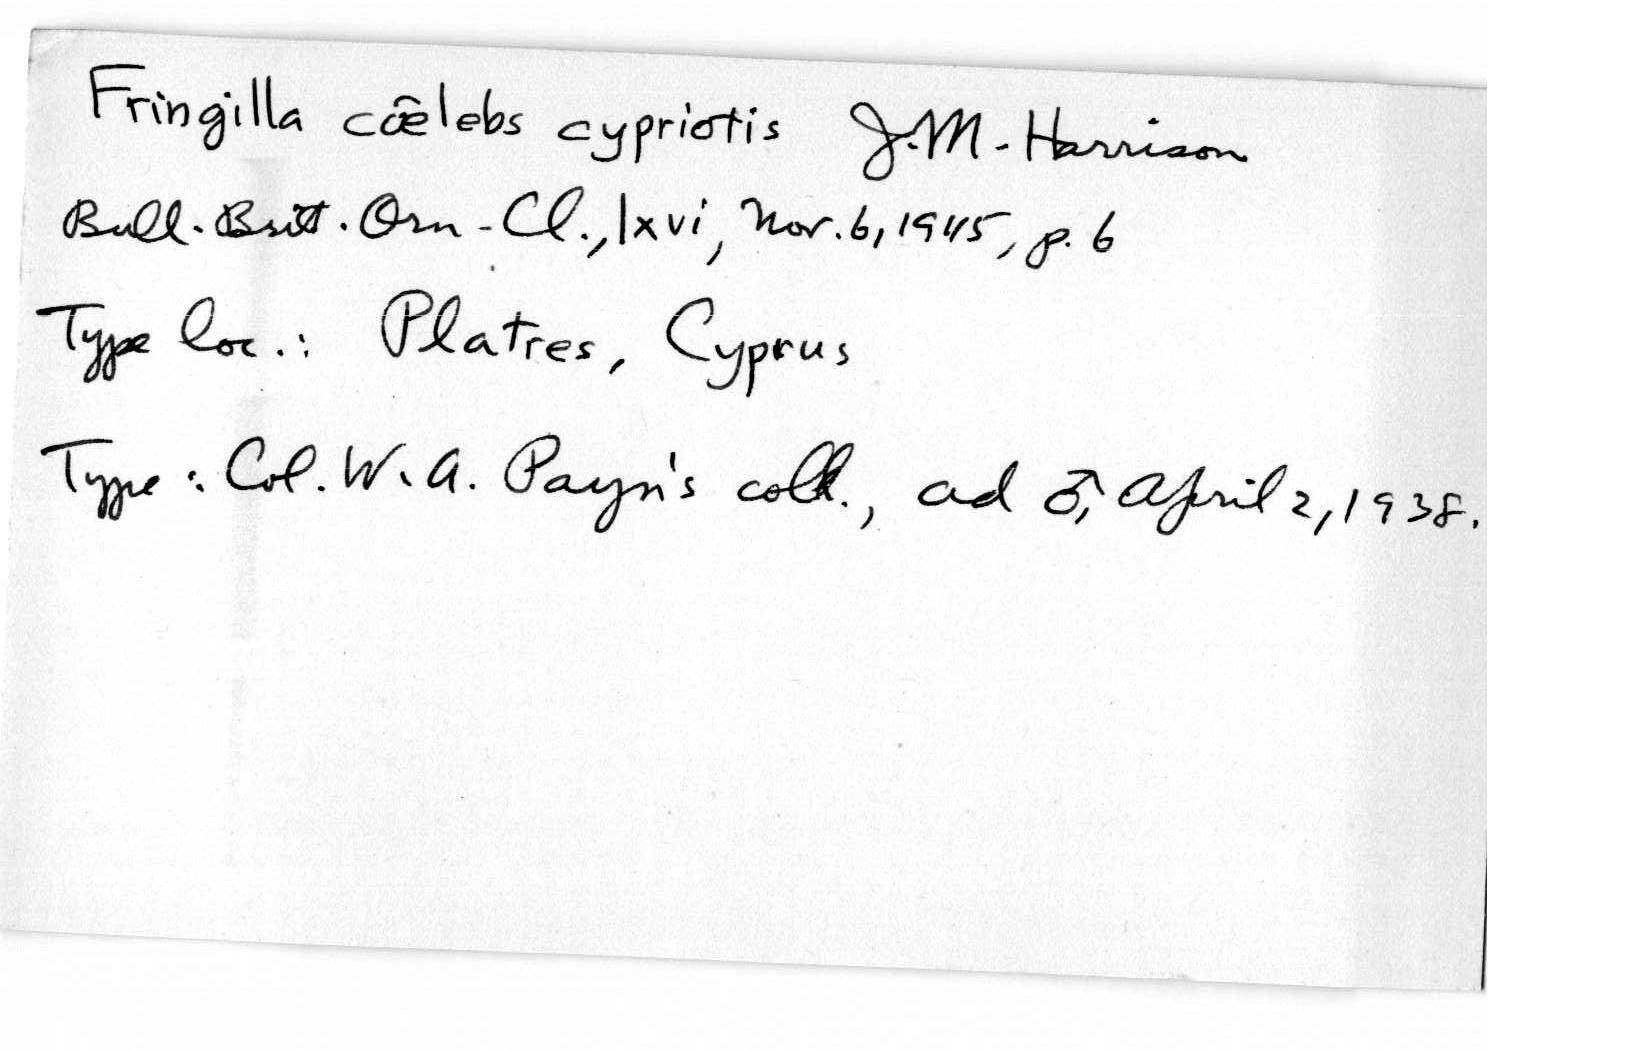 Fringilla cœlebs cypriotis J.M. Harrison
Bull. Brit. Orn. Cl., lxvi, Nov. 6, 1945, p. 6
Type loc.: Platres, Cyprus
Type: Col. W. A. Payn's coll., ad ♂, April 2, 1938.